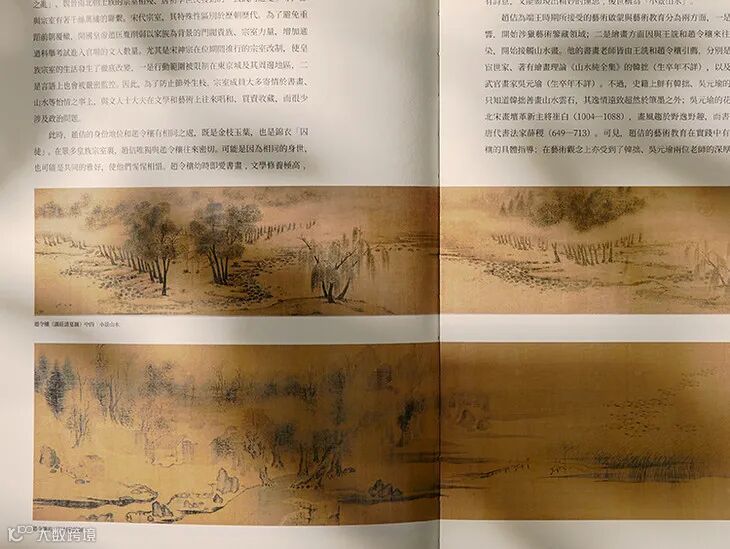 與宗室有著千絲萬縷的聯繫。宋代宗室，其特殊性區別於歷朝歷代。為了避免重
蹈前朝覆轍，開國皇帝趙匡胤削弱以家族為背景的門閥貴族、宗室力量，增加通
過科舉考試進入官場的文人數量。尤其是宋神宗在位期間推行的宗室改制，使皇
族宗室的生活發生了徹底改變，一是行動範圍被限制在東京城及其周邊地區，二
是言語上也曾被嚴密監控。因此，為了防止節外生枝，宗室成員大多寄情於書畫、
山水等怡情之事上，與文人士大夫在文學和藝術上往來唱和、買賣收藏，而很少
涉及政治問題。
此時，趙佶的身份地位和趙令穰有相同之處，既是金枝玉葉，也是錦衣「囚
徒」。在眾多皇族宗室裏，趙佶唯獨與趙令穰往來密切。可能是因為相同的身世，
也可能是共同的雅好，使他們惺惺相惜。趙令穰幼時即愛書畫，文學修養極高，
趙令穰《湖莊清夏圖》中的「小景山水」
趙佶為端王時期所接受的藝術啟蒙與藝術教育分為兩方面，一是
響，開始涉獵藝術鑒藏領域；二是繪畫方面因與王詵和趙令穰來往
染，開始接觸山水畫。他的書畫老師皆由王詵和趙令穰引薦，分別是
官世家、著有繪畫理論《山水純全集》的韓拙（生卒年不詳），以及
武官畫家吳元瑜（生卒年不詳）。不過，史籍上鮮有韓拙、吳元瑜的
只知道韓拙善畫山水窠石，其逸情遠致超然於筆墨之外；吳元瑜的花
北宋畫壇革新主將崔白（1004—1088），畫風趨於野逸野趣，而書
唐代書法家薛稷（649—713）。可見，趙佶的藝術教育在實踐中有
構的具體指導；在藝術觀念上亦受到了韓拙、吳元瑜兩位老師的深厚
大数跨境